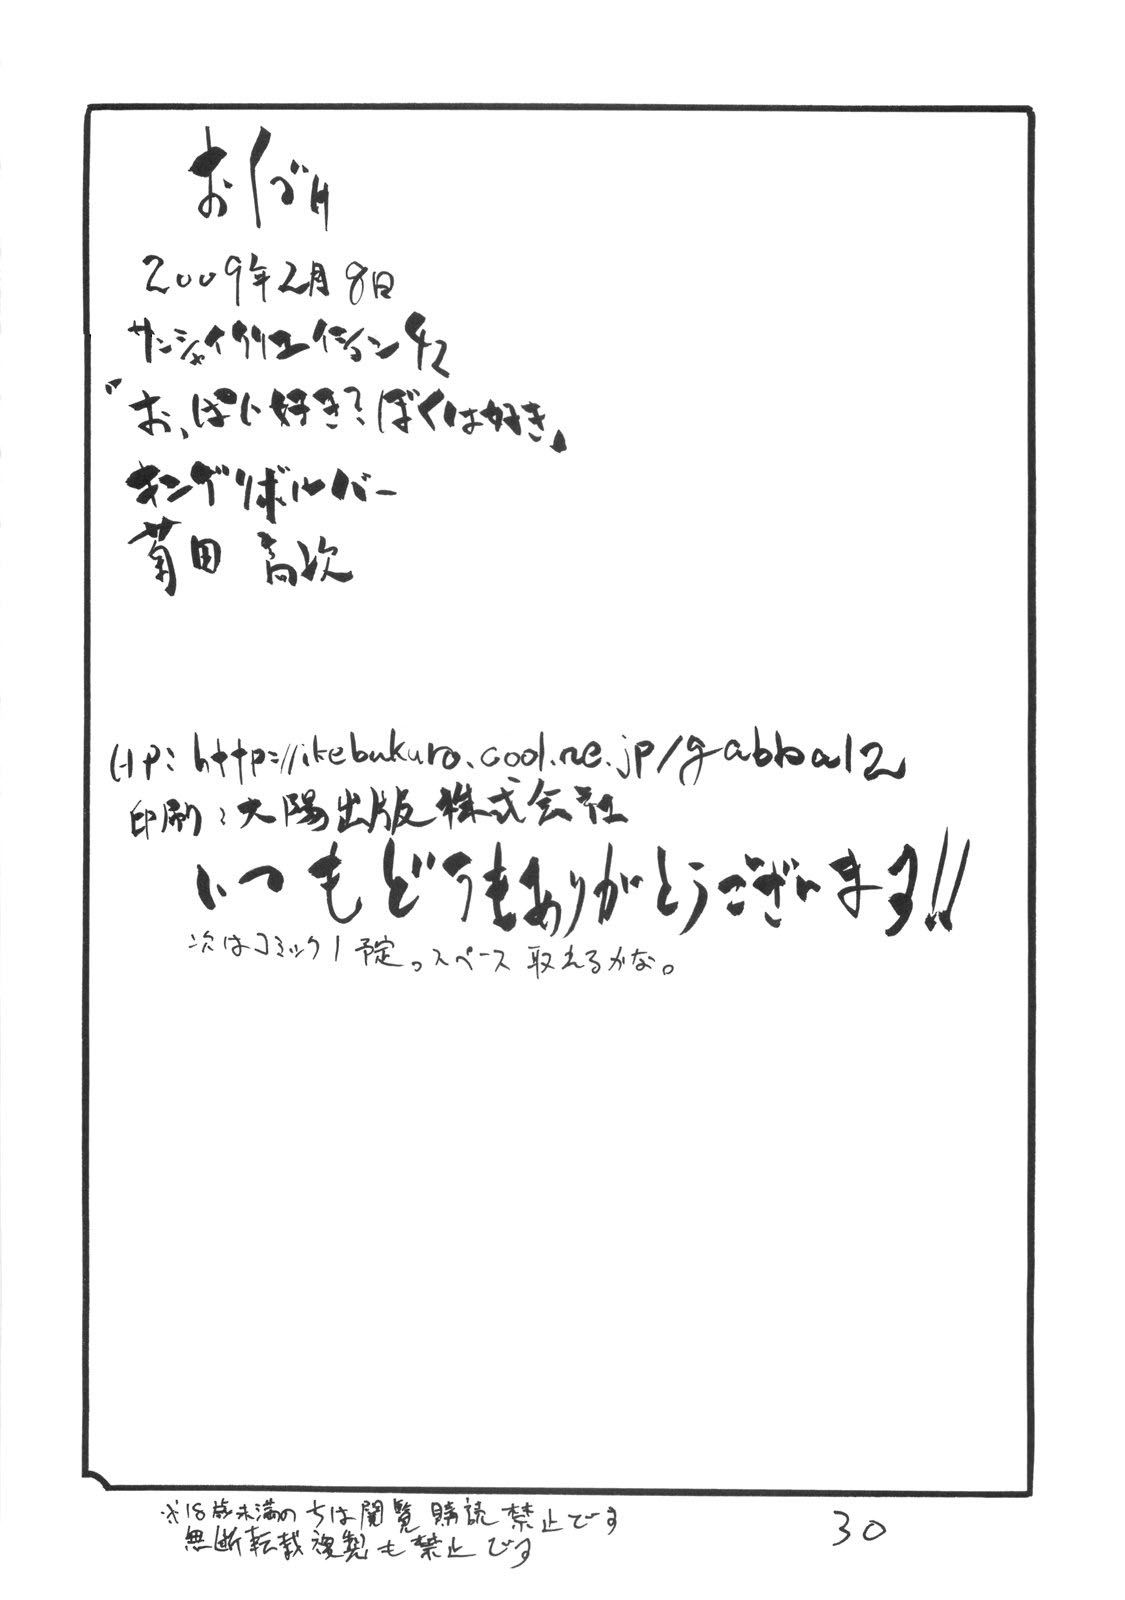 おくづけ
2009年2月8日
サンシャイクリエイション42
『おっぱい好き?ぼくは好き』
キングリボルバー
菊田 高次
HP:http://ikebukuro.cool.ne.jp/gabba12
印刷:大陽出版株式会社
いつもどうもありがとうございます!!
次はコミック1予定。スペース取れるかな。
※18歳未満の方は閲覧購読禁止です
無断転載複製も禁止です
30